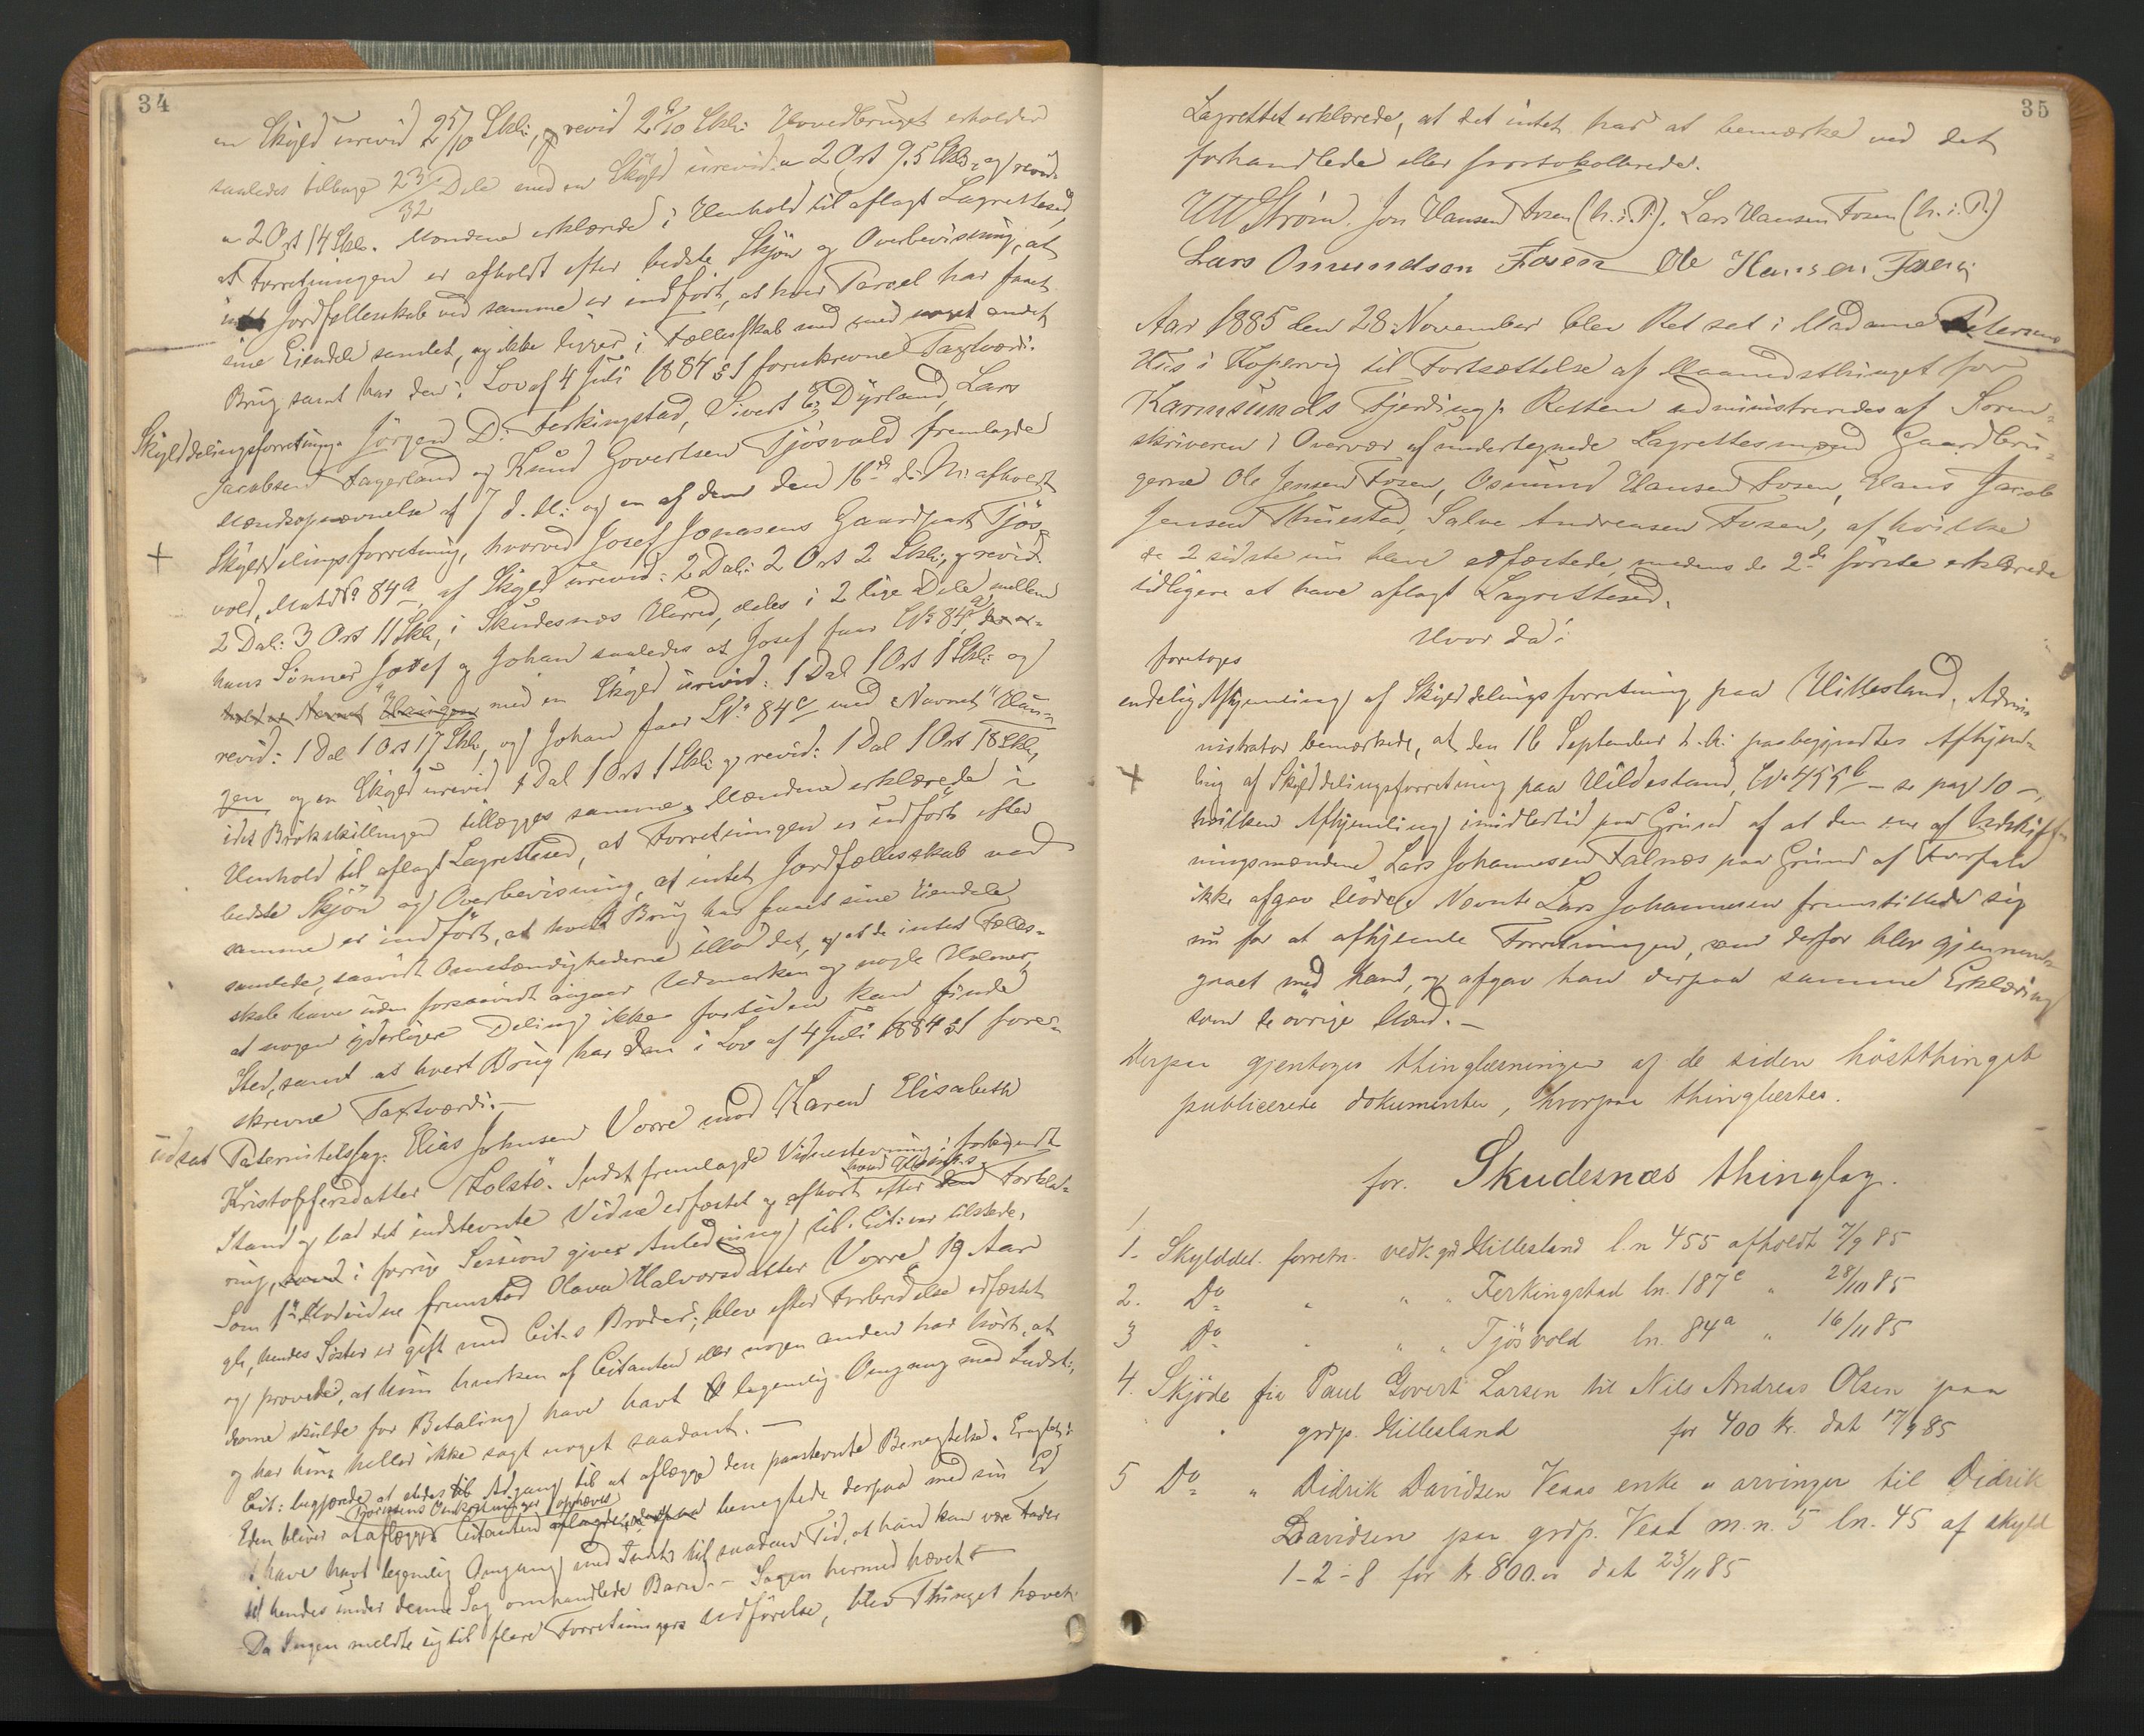 34
en Skyld urevid 2 5/10 Skli, og revid 2 6/10 Skli Hovedbruget erholder
saaledes tilbage 23/32 Dele med en Skyld urevid. a 2 Ort 9.5 Skli og revid.
a 2 Ort 14 Skli. Mændene erklærede i Henhold til aflagt Lagrettesed,
at Forretningen er afholdt efter bedste Skjøn og Overbevisning, at
intet Jordfællesskab ved samme er indført, at hver Parcel har faaet
sine Eiendele samlet, og ikke ligger i Fællesskab med noget andet
Brug samt har den i Lov af 4 Juli 1884 § 1 foreskrevne Taxtværdi.
Skylddelingsforretning. Jörgen D. Ferkingstad, Sivert E. Dyrland, Lars
Jacobsen Fagerland og Knud Govertsen Tjösvold fremlagde
Mændsopnævnelse af 7 d. M: og en af dem den 16de d. M: afholdt
+ Skylddelingsforretning, hvorved Josef Jonasens Gaardpart Tjös-
vold, Mat. No 84a, af Skyld urevid: 2 Dal: 2 Ort 2 Skli, og revid.
2 Dal: 3 Ort 11 Skli, i Skudesnæs Herred, deles i 2 lige Dele mellem
hans Sönner Josef og Johan saaledes at Josef faar LNo 84a,
med en Skyld urevid: 1 Dal 1 Ort 1 Skli og
revid: 1 Dal 1 Ort 17 Skli, og Johan faar LNo 84c med Navnet "Hau-
gen og en Skyld urevid 1 Dal 1 Ort 1 Skli og revid: 1 Dal 1 Ort 18 Skli,
idet Brökskillingen tillægges samme. Mændene erklærede i
Henhold til aflagt Lagrettesed, at Forretningen er udfört efter
bedste Skjön og Overbevisning, at intet Jordfællesskab ved
samme er indfört, at hvert Brug har faaet sine Eiendele
samlede, saavidt Omstændighederne tillod det, og at de intet Fælles-
skab have uden forsaavidt angaar Udmarken og nogle Holmer,
at nogen yderligere Deling ikke for tiden kan finde
Sted, samt at hvert Brug har den i Lov af 4 Juli 1884 § 1 fore-
skrevne Taxtværdi.—
udsat Paternitetssag. Elias Johnsen Vorre mod Karen Elisabeth
Kristoffersdatter Kolstö. Indst. fremlagde Vidnestevning i forkyndt
Stand og bad det indstevnte Vidne edfæstet og afhört efter Forkla-
ring, i forrige Session giver Anledning til. Cit: var tilstede.
Som 1ste Modvidne fremstod Olava Halvorsdatter Vorre, 19 Aar
gl., hendes Söster er gift med Cit.s Broder; blev efter Forberedelse edfæstet
og provede, at hun hverken af Citanten eller nogen anden har hört, at
denne skulde for Betaling have havt legemlig Omgang med Indst:,
og har hun heller ikke sagt noget saadant.—
Cit: begjærede at stedes til Adgang til at aflægge den paastevnte Benegtelsesed.
Eden bliver at aflægge. Citanten benegtede derpaa med sin Ed
at have havt legemlig Omgang med Indst: til saadan Tid, at han kan være Fader
til hendes under denne Sag omhandlede Barn.— Sagen hermed hævet.—
Da Ingen meldte sig til flere Forretningers Udførelse, blev Thinget hævet.
35
Lagrettet erklærede, at det intet har at bemærke ved det
forhandlede eller protokollerede.
UW Strøm. Jon Hansen Fosen (h. i. P.). Lars Hansen Fosen (h. i. P.)
Lars Omundsen Fosen Ole Hansen Fosen
Aar 1885 den 28 November blev Ret sat i Madame Petersens
Hus i Kopervig til Fortsættelse af Maanedsthinget for
Karmsunds Fjerding. Retten administreredes af Soren-
skriveren i Overvær af undertegnede Lagrettesmænd Gaardbru-
gerne Ole Jensen Fosen, Osmund Hansen Fosen, Hans Jacob
Jensen Thuestad, Salve Andreasen Fosen, af hvilke
de 2 sidste nu bleve edfæstede, medens de 2de förste erklærede
tidligere at have aflagt Lagrettesed.
Hvor da:
foretoges
endelig Afhjemling af Skylddelingsforretning paa Hillesland. Admi-
nistrator bemærkede, at den 16 September d. A. paabegyndtes Afhjem-
+ ling af Skylddelingsforretning paa Hildesland, LNo 455b — se pag 10 —,
hvilken Afhjemling imidlertid paa Grund af at den ene af Udskift-
ningsmændene Lars Johannesen Falnæs paa Grund af Forfald
ikke afgav Möde. Nevnte Lars Johannesen fremstillede sig
nu for at afhjemle Forretningen, som derfor blev gjennem-
gaaet med ham, og afgav han derpaa samme Erklæring
som de övrige Mænd.—
Derpaa gjentoges thinglæsningen af de siden höstthinget
publicerede dokumenter, hvorpaa thinglæstes.
for. Skudesnæs thinglag.
1
1. Skylddel. forretn. vedk. grd Hillesland l.n 455 afholdt 7/9 85
2. Do " " " Ferkingstad ln. 187e " 28/10 85
3 Do " " " Tjösvold ln. 84a " 16/11 85
4. Skjöde fra Paul Govert Larsen til Nils Andreas Olsen paa
" grdp. Hillesland for 400 kr. dat 17/9 85
5 Do " Didrik Davidsen Veaas enke & arvinger til Didrik
Davidsen paa grdp. Vead m.n. 5 ln. 45 af skyld
1-2-8 for kr. 800.00 dat 23/11 85